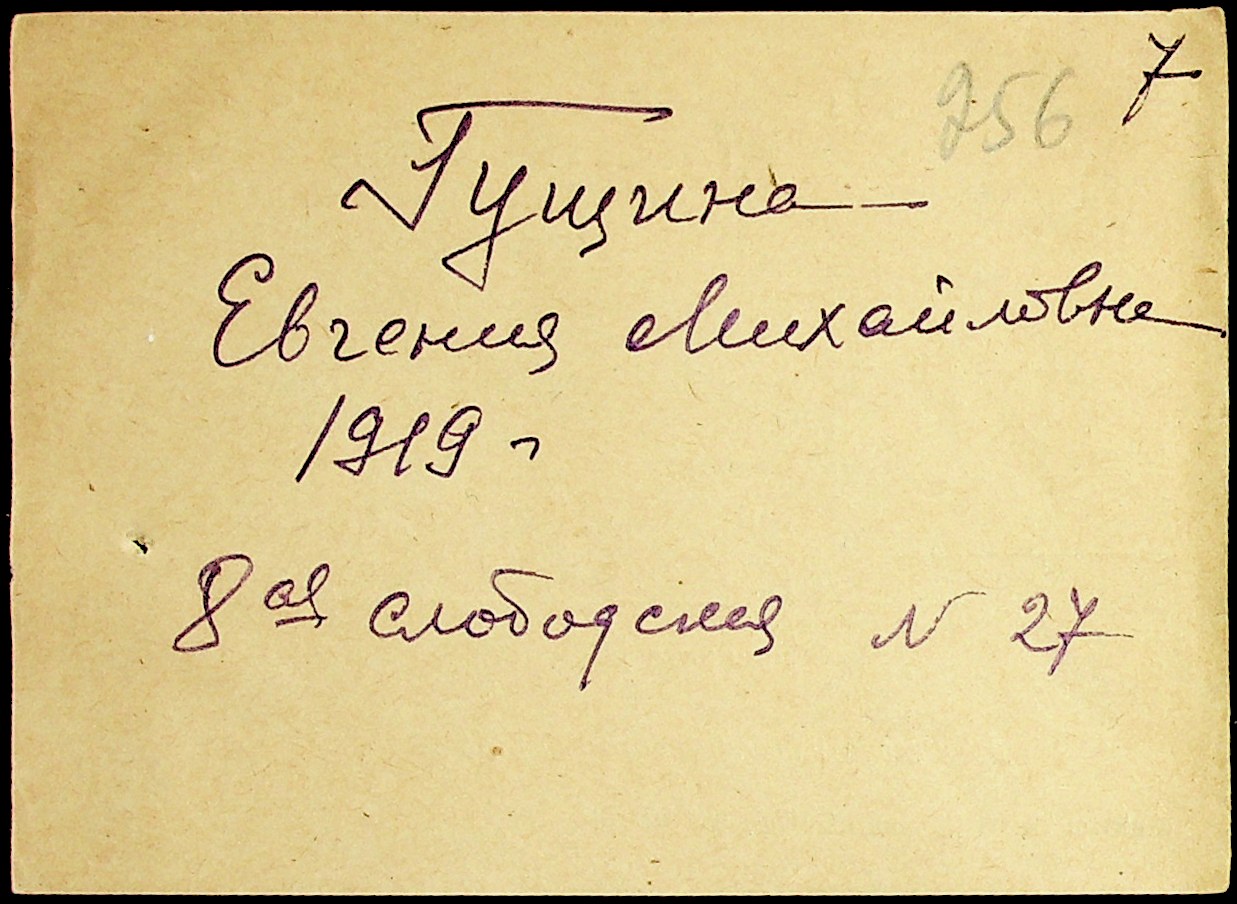 256 7
Гущина
Евгения Михайловна
1919 г
8ая слободская N 27